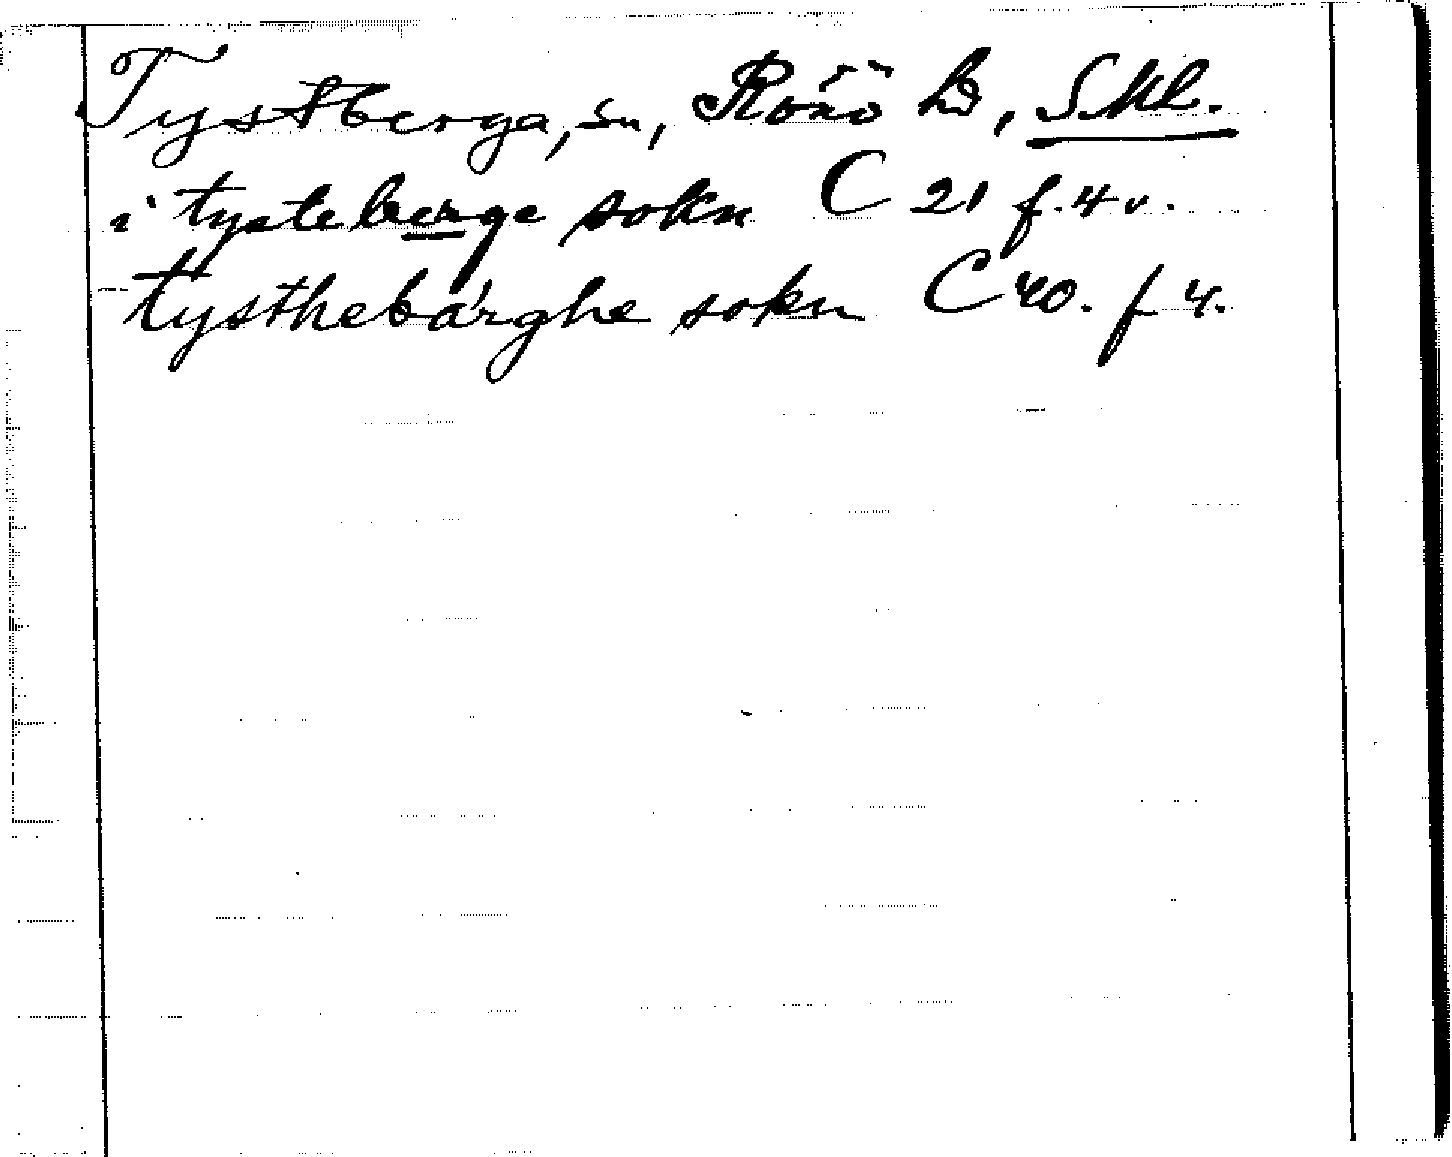 Tystberga, sn, Rönö hd, Sml.
i tysteberge sokn C 21 f. 4 v.
tysthebärghe sokn C 40. f 4.